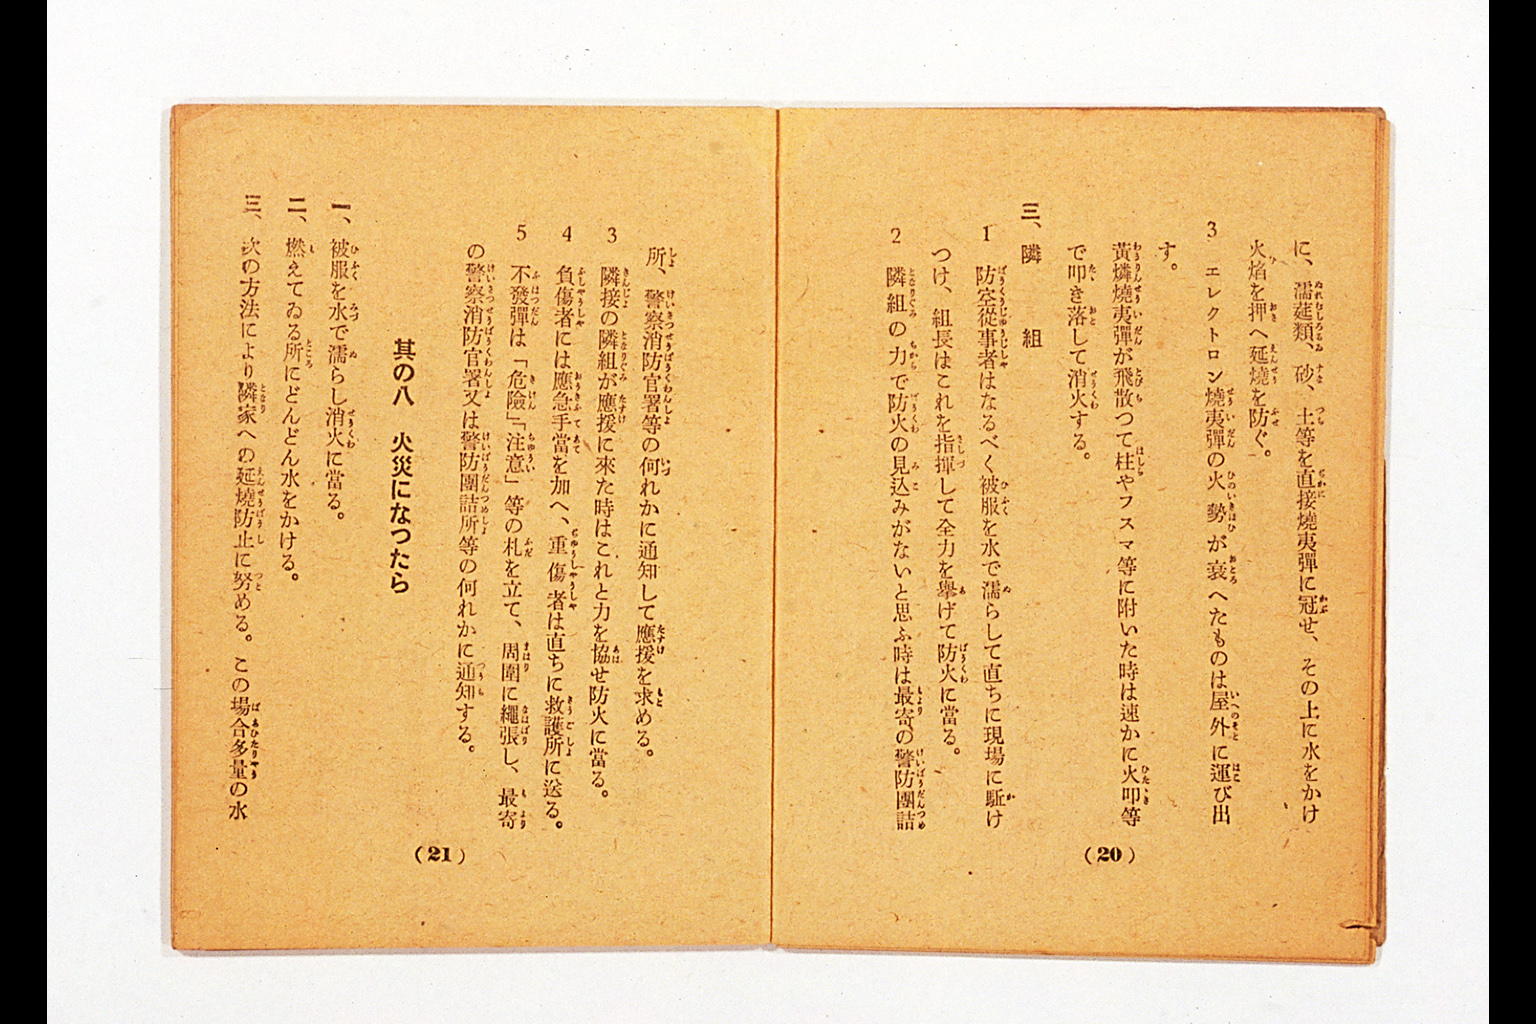 に、濡莚類、砂、土等を直接燒夷彈に冠せ、その上に水をかけ
火焰を押へ延燒を防ぐ。
3 エレクトロン燒夷彈の火勢が衰へたものは屋外に運び出
す。
黃燐燒夷彈が飛散つて柱やフスマ等に附いた時は速かに火叩等
で叩き落して消火する。
三、隣組
1 防空從事者はなるべく被服を水で濡らして直ちに現場に駈け
つけ、組長はこれを指揮して全力を擧げて防火に當る。
2 隣組の力で防火の見込みがないと思ふ時は最寄の警防團詰
(20)
所、警察消防官署等の何れかに通知して應援を求める。
3 隣接の隣組が應援に來た時はこれと力を協せ防火に當る。
4 負傷者には應急手當を加へ、重傷者は直ちに救護所に送る。
5 不發彈は「危險」「注意」等の札を立て、周圍に繩張し、最寄
の警察消防官署又は警防團詰所等の何れかに通知する。
其の八 火災になつたら
一、被服を水で濡らし消火に當る。
二、燃えてゐる所にどんどん水をかける。
三、次の方法により隣家への延燒防止に努める。この場合多量の水
(21)